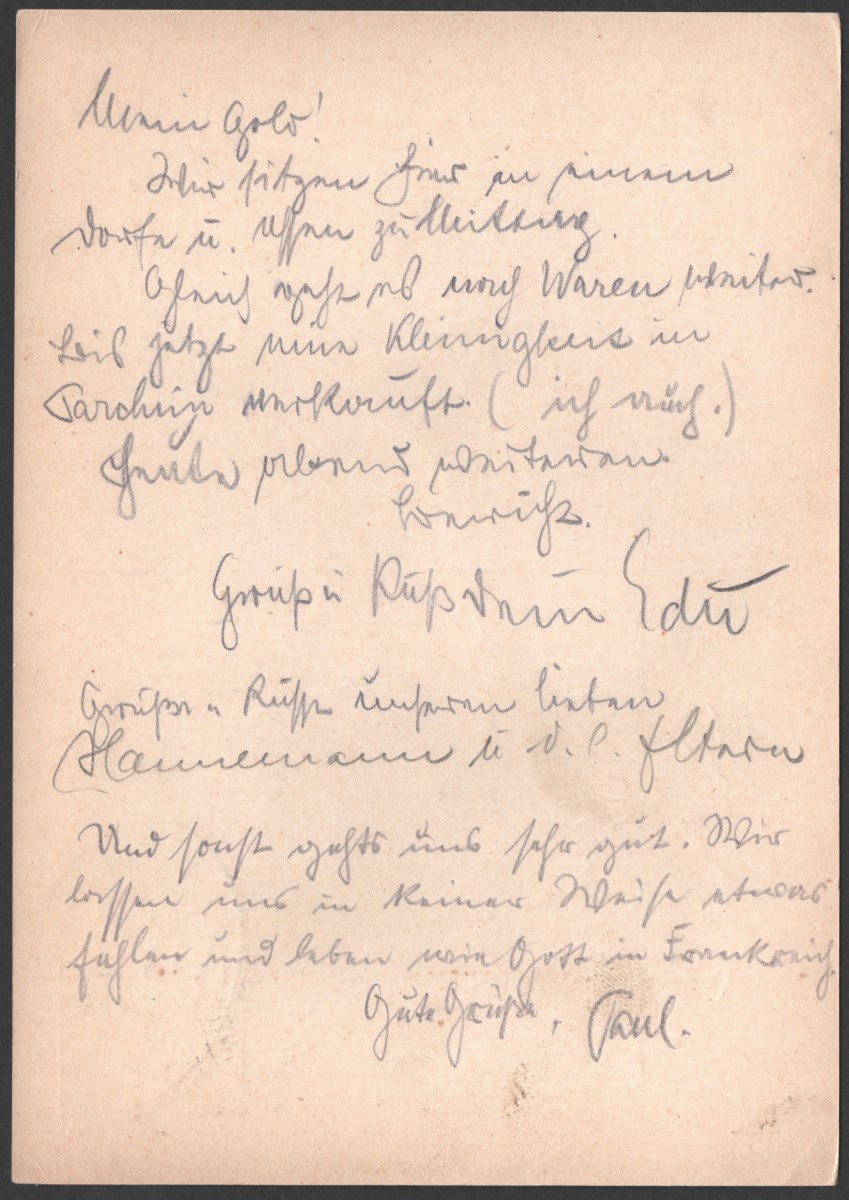 Mein Gold!
Wir sitzen hier in einem
Dorfe u. essen zu Mittag.
Gleich geht es nach Waren weiter.
Bis jetzt eine Kleinigkeit in
Parchim verkauft. (ich auch.)
Heute abend weiteren
Bericht.
Gruß u Kuß Dein Edu
Grüße u Küsse unseren lieben
Hannemann u d. l. Eltern
Und sonst gehts uns sehr gut. Wir
lassen uns in keiner Weise etwas
fehlen und leben wie Gott in Frankreich.
Gute Grüße, Paul.